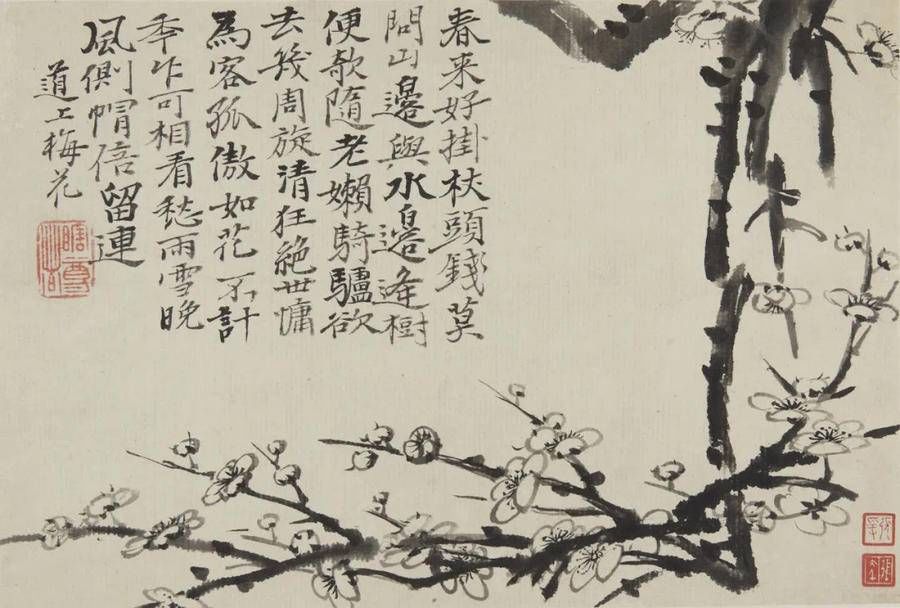 春来好掛杖頭錢莫
問山邊與水邉逢樹
便欹隨老嬾騎驢欲
去幾周旋清狂絶世慵
為客孤傲如花不計
年乍可相看愁雨雪晚
風側帽倍留連
道上梅花
瞎尊者